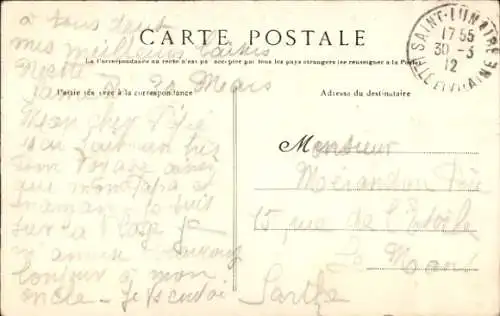 à tous deux
mes meilleurs baisers
CARTE POSTALE
La Correspondance au recto n'est pas acceptée par tous les pays étrangers (se renseigner à la Poste)
SAINT-LUNAIRE
17 55
30 - 3
12
ILLE ET VILAINE
30 Mars
Partie réservée à la correspondance
Adresse du destinataire
Mon cher
J'ai fait un
bon voyage
que mon Papa et
maman je suis
sur la plage je
m'amuse
bonjour à mon
oncle - Je t'envoi
Monsieur
Mérandon
15, rue de l'Étoile
Le Mans
Sarthe